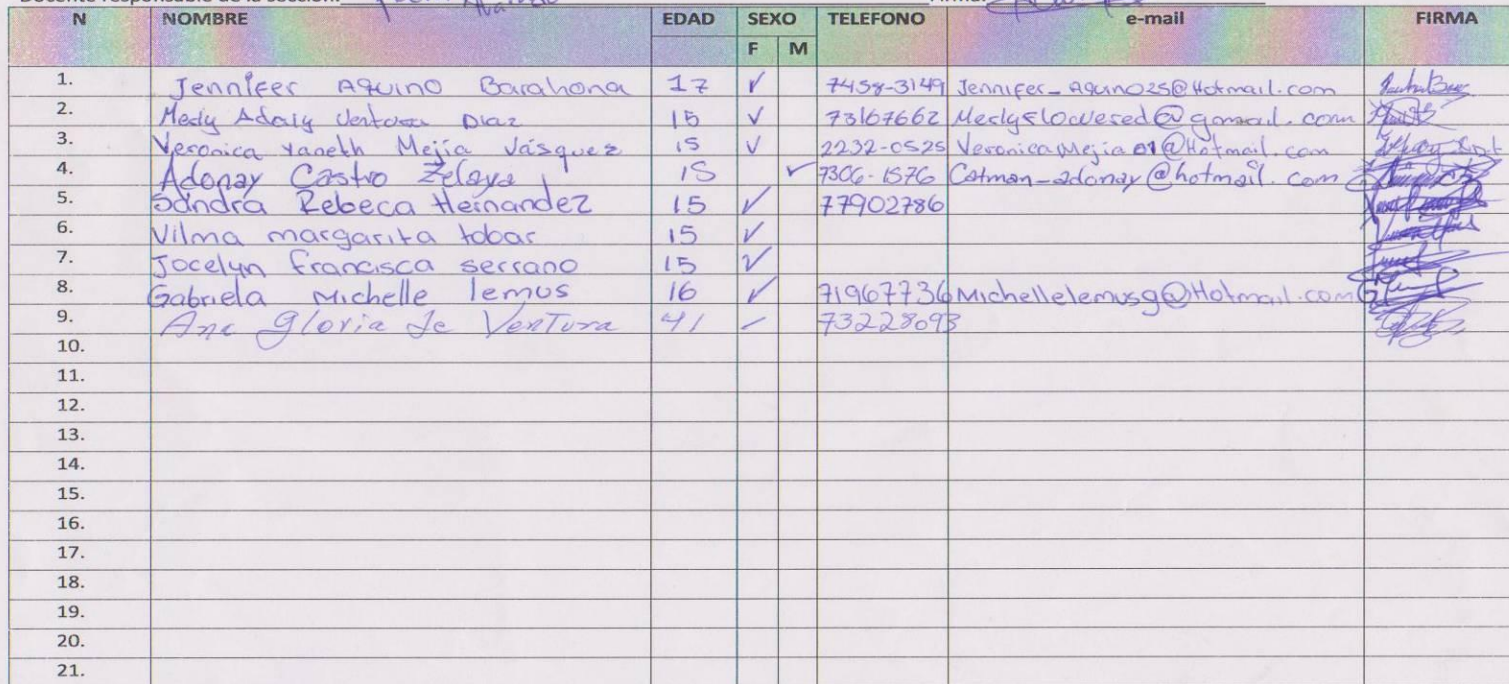 Docente responsable de la sección: Firma:
N NOMBRE EDAD SEXO TELEFONO e-mail FIRMA
F M
1. Jennifer Aquino Barahona 17 ✓ 7458-3149 Jennifer_Aquino25@Hotmail.com
2. Medy Adaly Ventura Diaz 15 ✓ 73167662 Medyflowered@gmail.com
3. Veronica Yaneth Mejía Vásquez 15 ✓ 2232-0525 VeronicaMejia01@Hotmail.com
4. Adonay Castro Zelaya 15 ✓ 7306-1576 Catman_adonay@hotmail.com
5. Sandra Rebeca Hernandez 15 ✓ 77902786
6. Vilma margarita tobar 15 ✓
7. Jocelyn francisca serrano 15 ✓
8. Gabriela Michelle lemus 16 ✓ 71967736 Michellelemusg@Hotmail.com
9. Ana Gloria de Ventura 41 ✓ 73228093
10.
11.
12.
13.
14.
15.
16.
17.
18.
19.
20.
21.